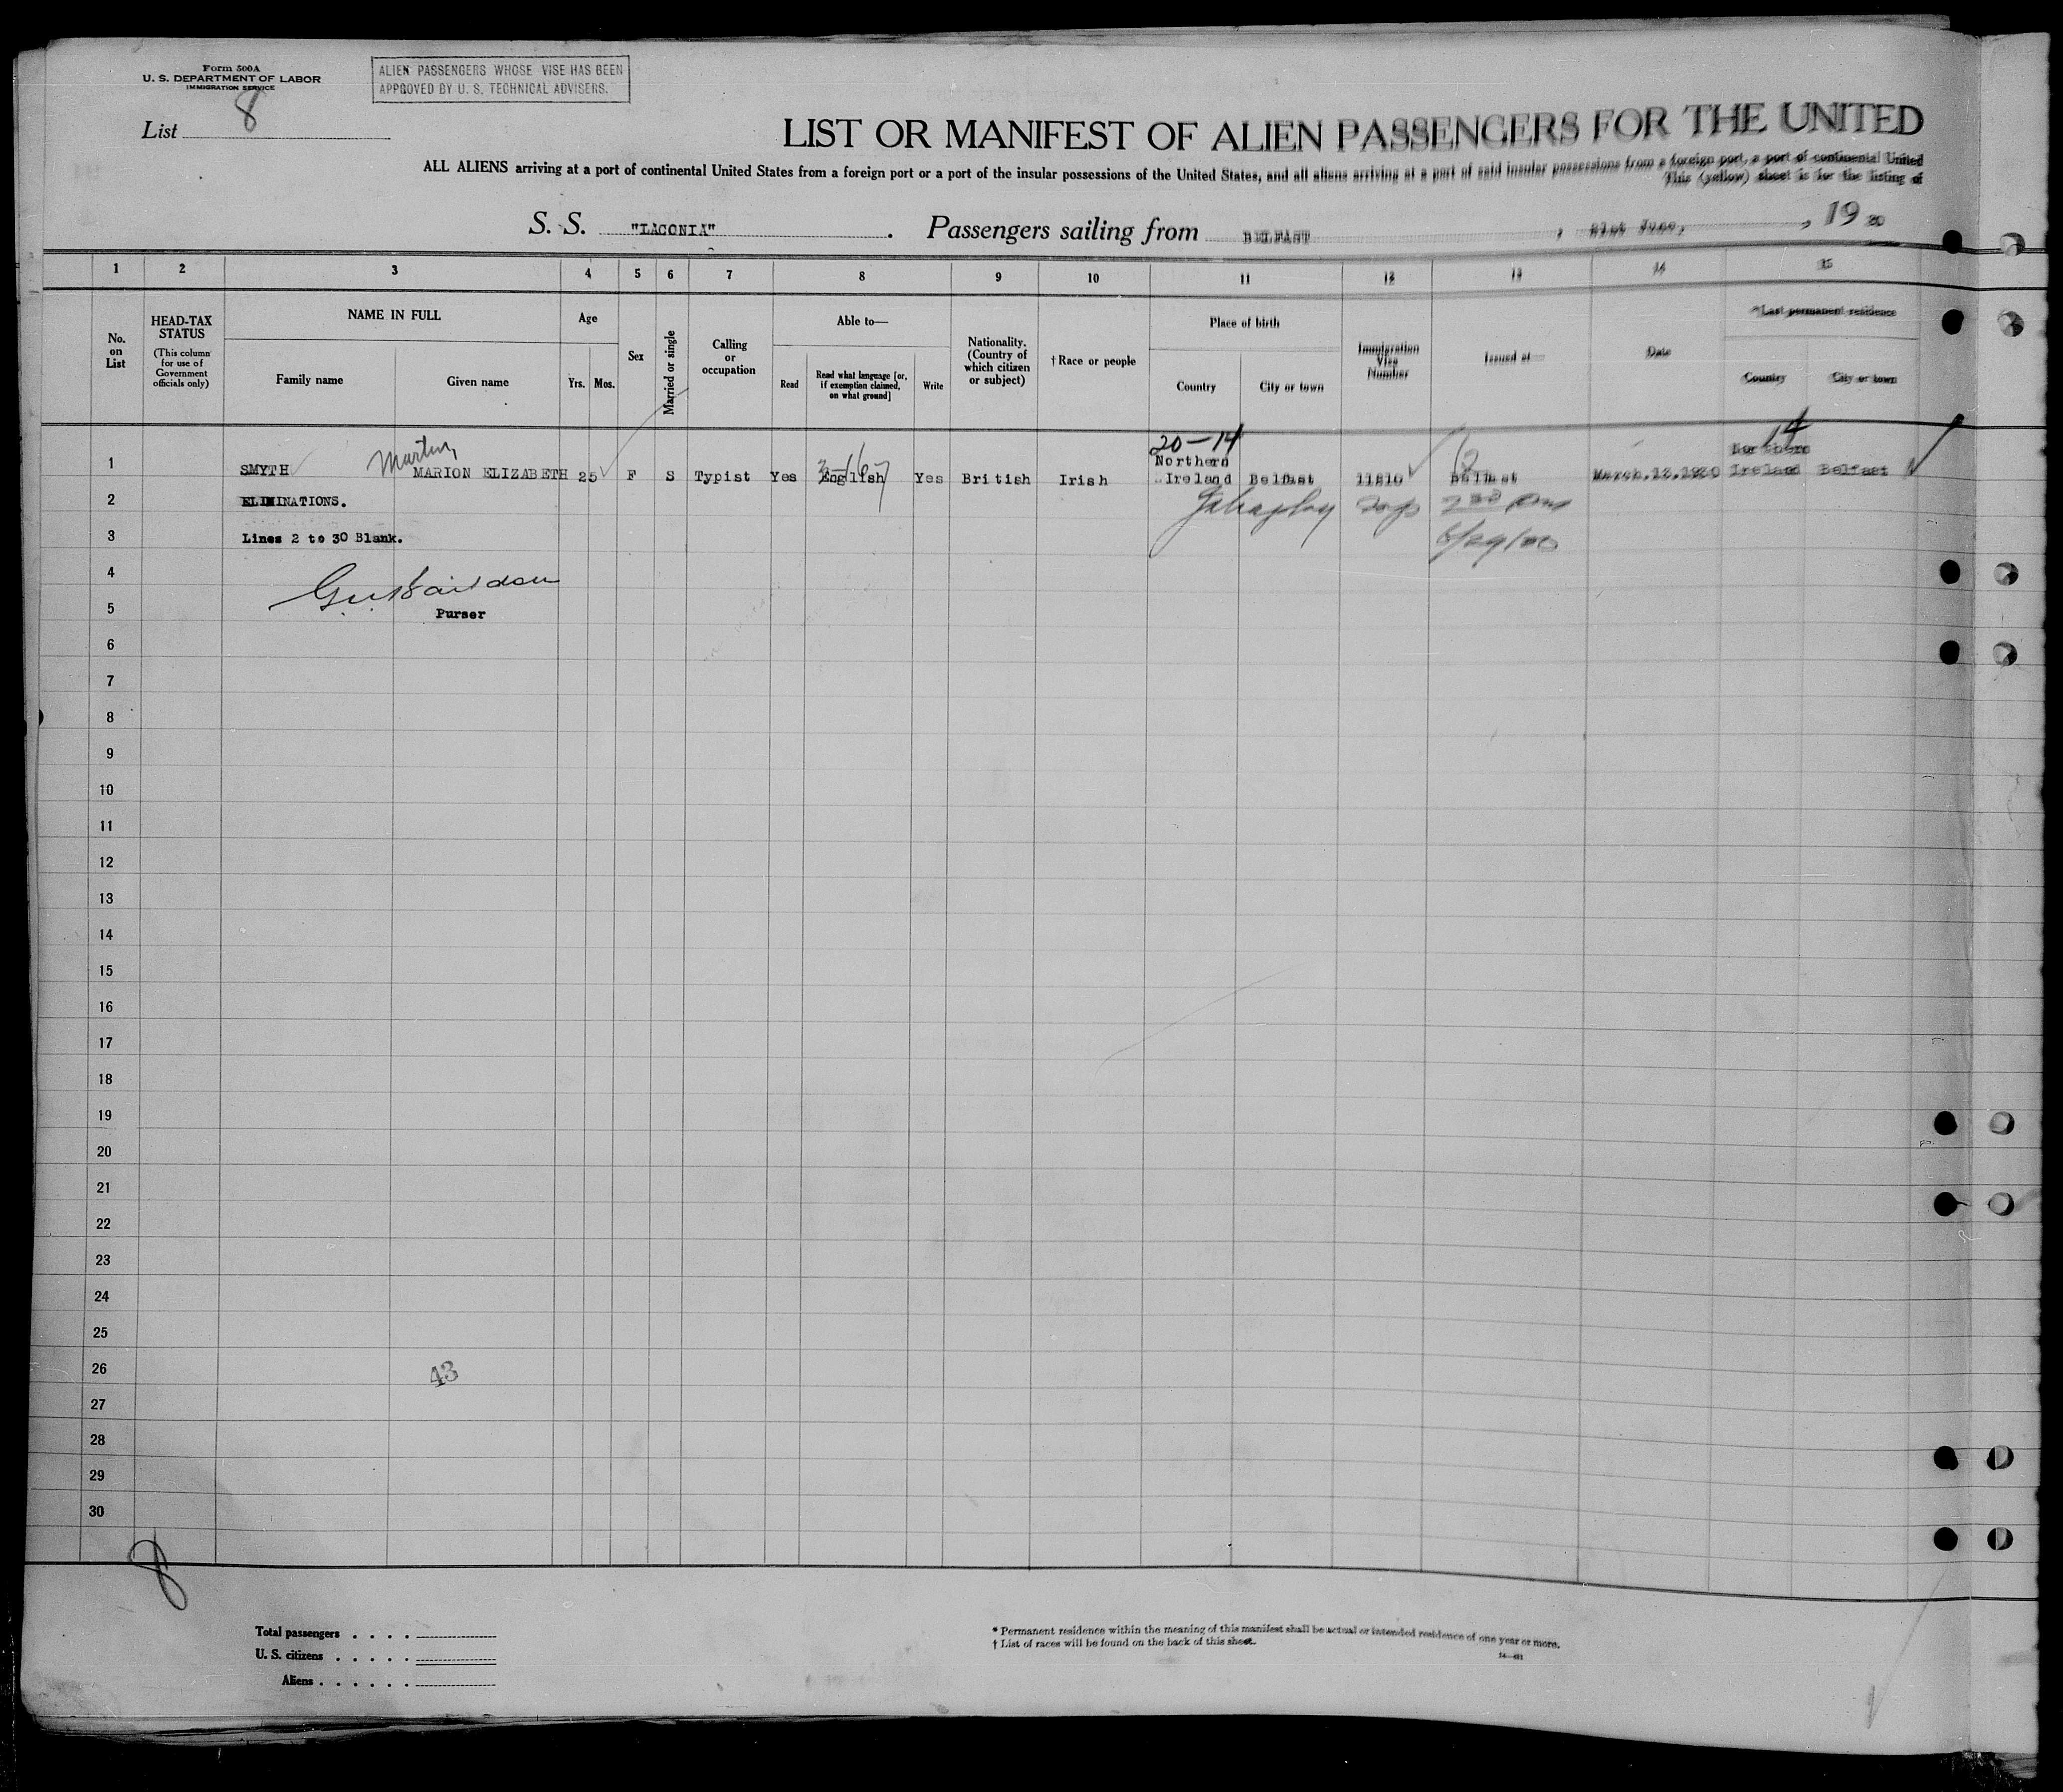 Form 500A
U. S. DEPARTMENT OF LABOR
IMMIGRATION SERVICE
ALIEN PASSENGERS WHOSE VISE HAS BEEN
APPROVED BY U. S. TECHNICAL ADVISERS.
List 8
LIST OR MANIFEST OF ALIEN PASSENGERS FOR THE UNITED
ALL ALIENS arriving at a port of continental United States from a foreign port or a port of the insular possessions of the United States, and all aliens arriving at a port of said insular possessions from a foreign port, a port of continental United
This (yellow) sheet is for the listing of
S. S. "LACONIA". Passengers sailing from BELFAST, 21st June, , 1930
1 2 3 4 5 6 7 8 9 10 11 12 13 14 15
No. on List
HEAD-TAX STATUS
(This column for use of Government officials only)
NAME IN FULL
Family name
Given name
Age
Yrs. Mos.
Sex
Married or single
Calling or occupation
Able to—
Read
Read what language [or, if exemption claimed, on what ground]
Write
Nationality. (Country of which citizen or subject)
†Race or people
Place of birth
Country
City or town
Immigration Visa Number
Issued at—
Date
*Last permanent residence
Country
City or town
Martin
20-14
14
1 SMYTH MARION ELIZABETH 25 F S Typist Yes English Yes British Irish Northern Ireland Belfast 11810 Belfast March.13.1930 Northern Ireland Belfast
2 ELIMINATIONS.
3 Lines 2 to 30 Blank.
4
5 Purser
6
7
8
9
10
11
12
13
14
15
16
17
18
19
20
21
22
23
24
25
26
43
27
28
29
30
8
Total passengers . . . .
U. S. citizens . . . . .
Aliens . . . . . .
* Permanent residence within the meaning of this manifest shall be actual or intended residence of one year or more.
† List of races will be found on the back of this sheet.